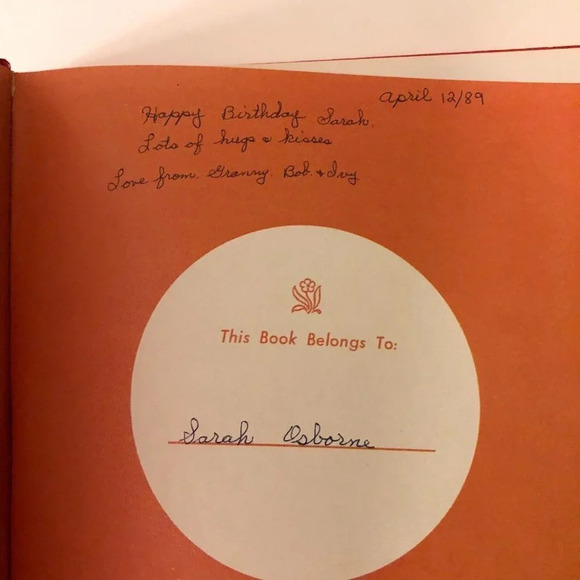 April 12/89
Happy Birthday Sarah.
Lots of hugs & kisses
Love from. Granny. Bob. & Ivy
This Book Belongs To:
Sarah Osborne